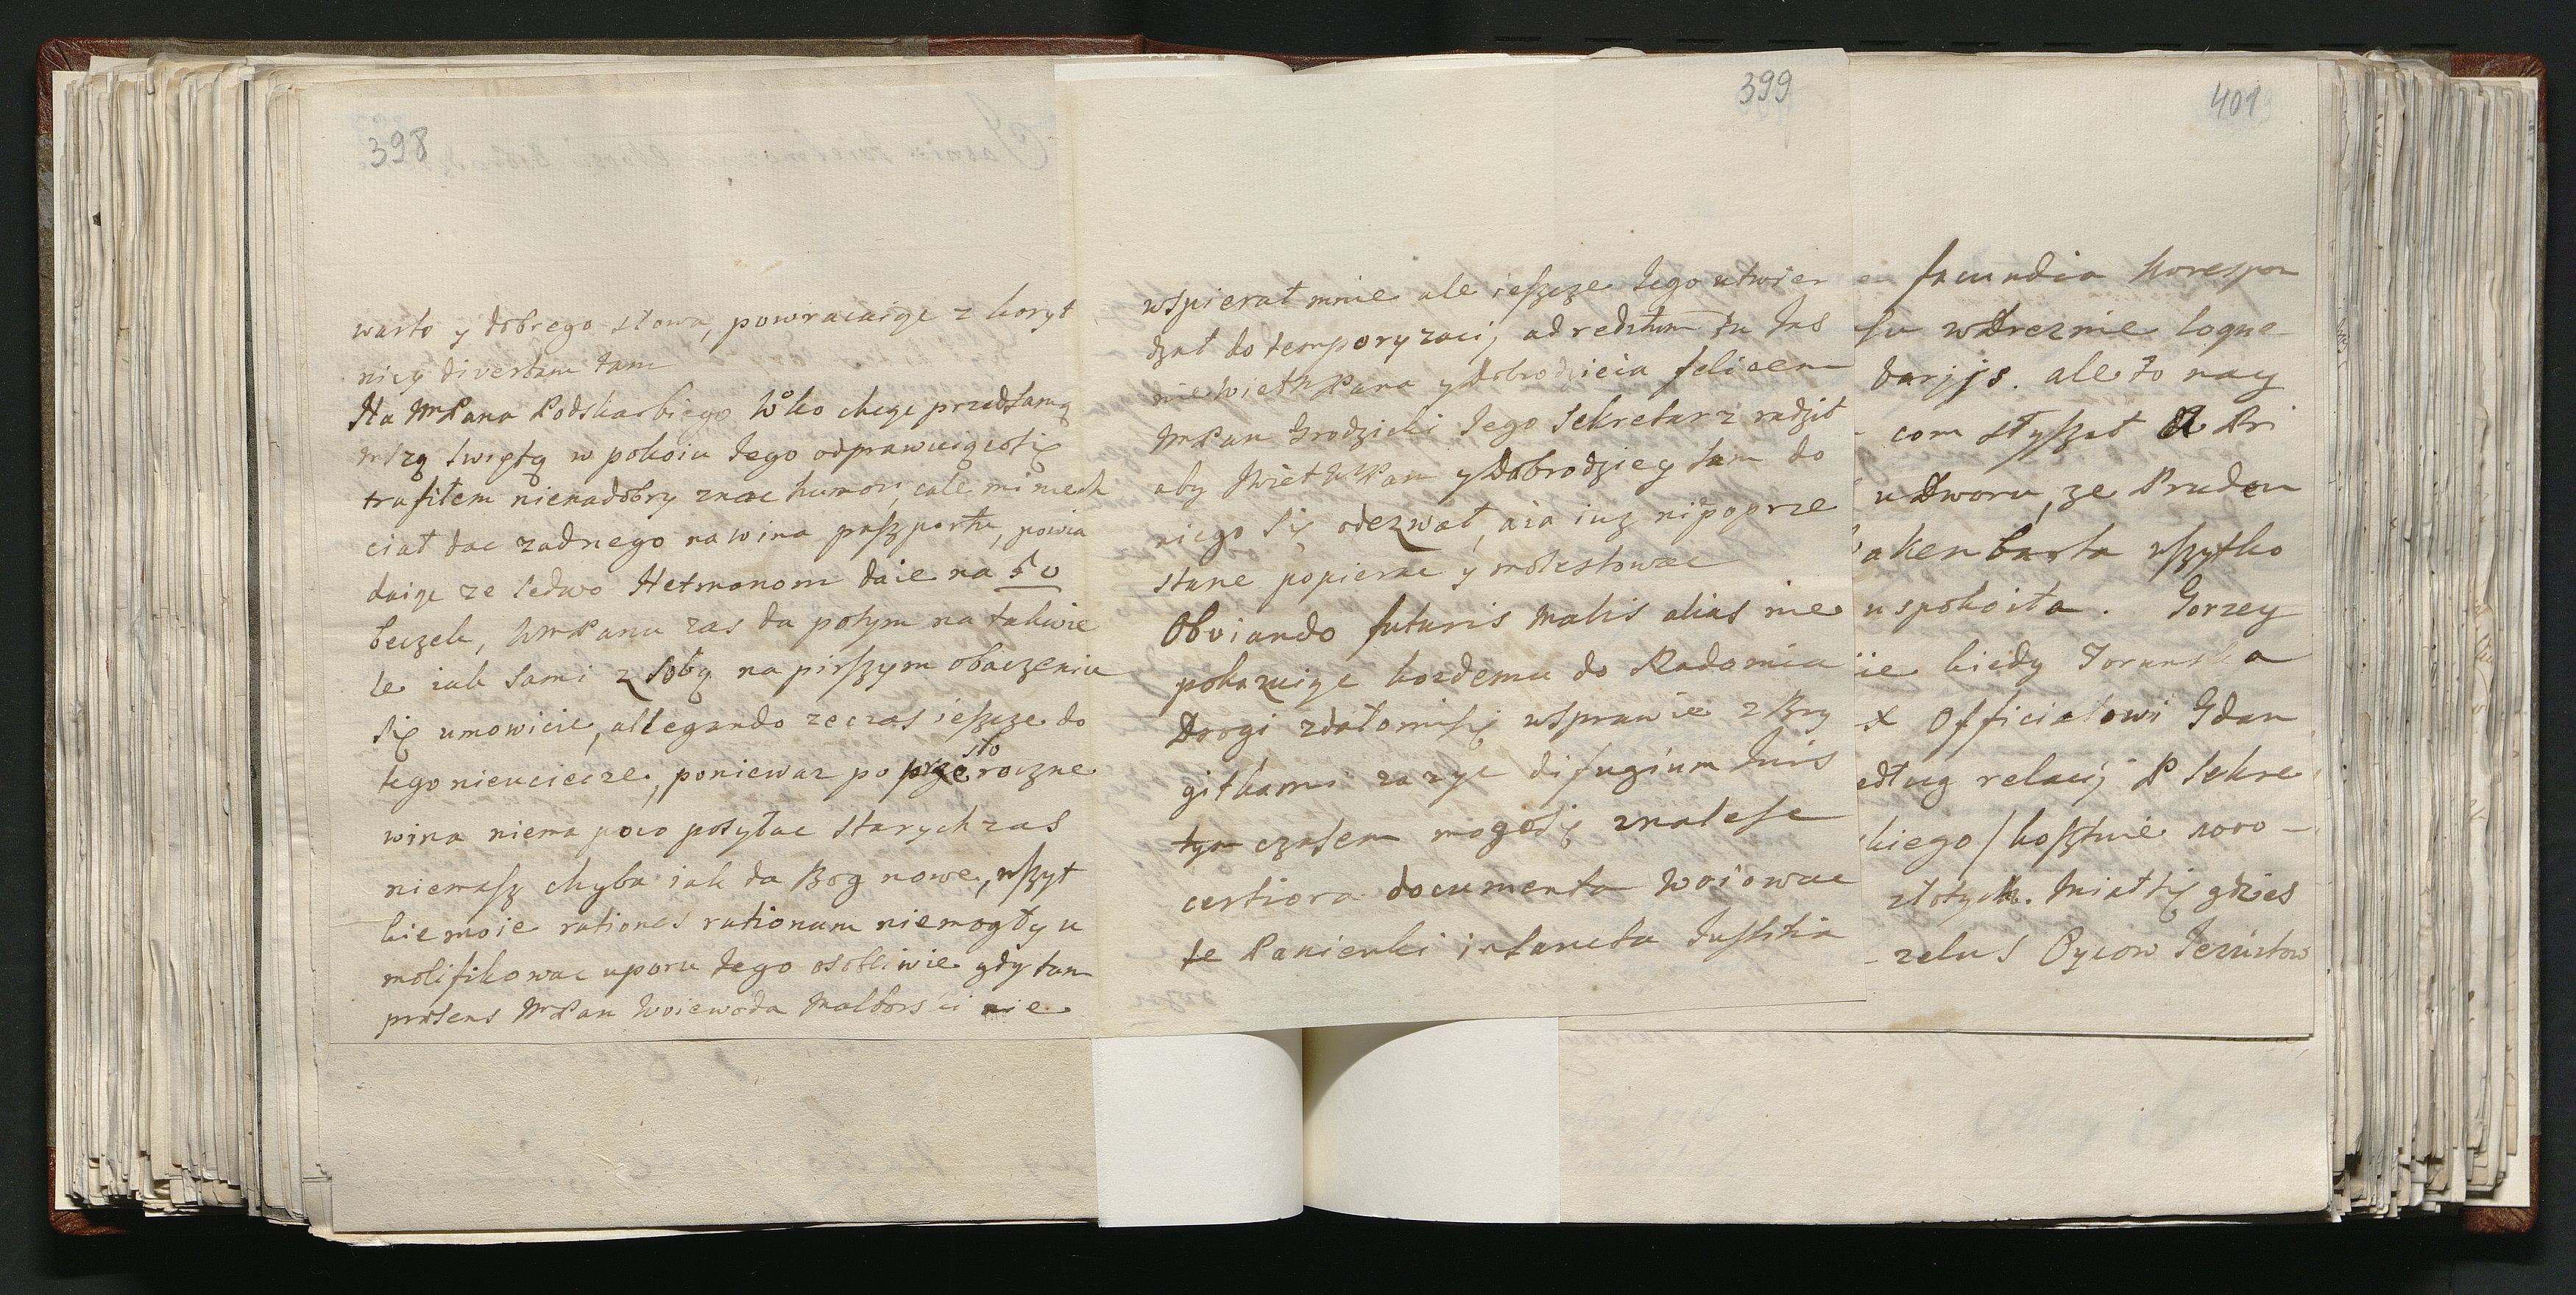 398
warto y dobrego słowa, powracaiąc z koryt
nicy divertam tam
Na WPana Podskarbiego Wko chcąc przed samą
mszą swiętą w pokoiu Jego odprawuiącosię
trafiłem nienadobry znac humor, cale mi niech
ciał dac zadnego na wina paszportu, powia
daiąc ze ledwo Hetmanom daie na 50
beczek, WmPanu zas da potym na takwie
le iak sami z sobą na pirszym obaczeniu
się umowicie, allegando ze czas ieszcze do
tego nieuciecze, poniewaz po prze sto roczne
wina niema poco posyłac starych zas
niemasz chyba iak da Bog nowe, wszyt
kie moie rationes rationum niemogły u
molifikowac uporu Jego osobliwie gdy tam
præsens WPan Woiewoda Malborski nie
399
wspierał mnie ale ieszcze Jego utwier
dzał do temporyzacij, ad reditum tu Jas
nie Wieth Pana y Dobrodzieia felicem
WPan Grodzicki Jego Sekretarz radził
aby JWieth WPan y Dobrodziey sam do
niego się odezwał, aia iuz nie poprze
stane popierac y molestowac
Obviando futuris malis alias nie
pokazuiąc kozdemu do Radomia
Drogi zdałomisię wsprawie z Bry
gitkami zazyc difugium Juris
tym czasem mogąsię znalesc
certiora documenta woiowac
te Panienki intancta Justitia
401
facundia korespon
su wDreznie loque
darijs. ale to nay
com słyszał A Pri
u Dworu, ze Pruden
akenbarta wszytko
uspokoiła. Gorzey
ie kiedy Torunska
x Officiałowi Gdan
edług relacij P Sekre
kiego / kosztuie 1000 -
złotych. Miał się gdzies
zelus Oycow Jezuitow